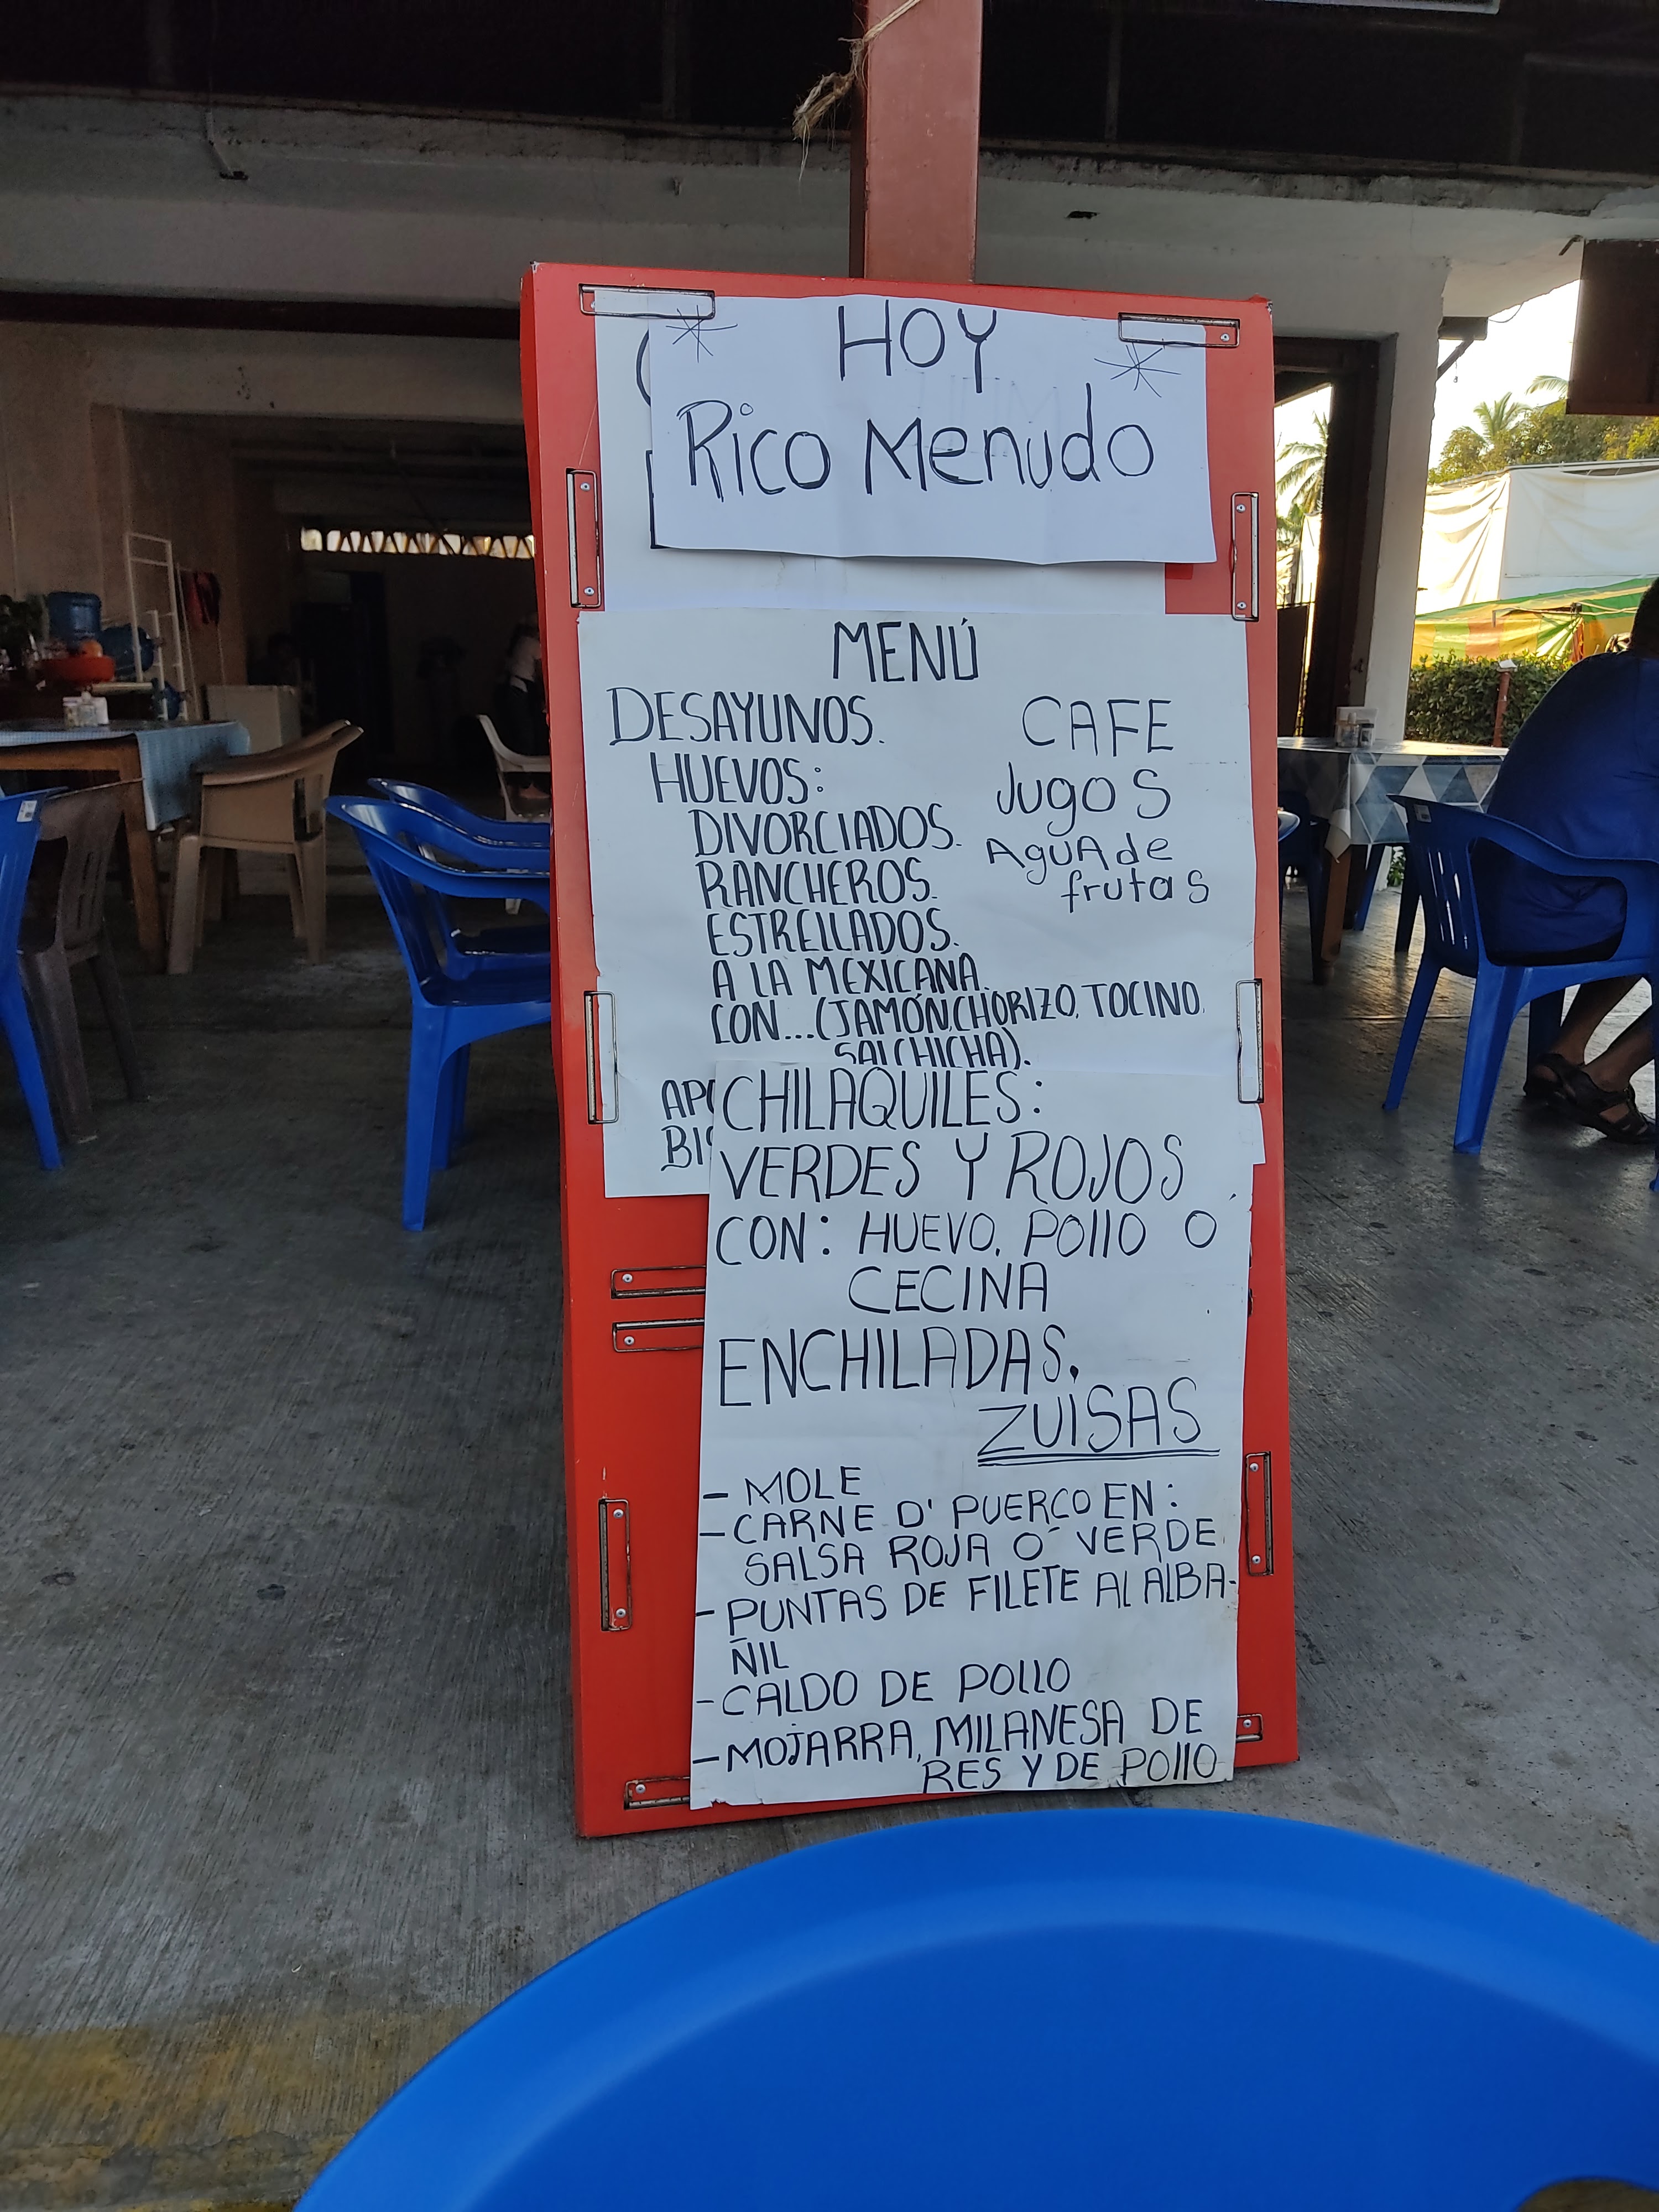 HOY
Rico Menudo
MENÚ
DESAYUNOS.
HUEVOS:
DIVORCIADOS.
RANCHEROS.
ESTRELLADOS.
A LA MEXICANA.
CON...(JAMÓN,CHORIZO,TOCINO,
SALCHICHA).
CAFE
Jugos
Agua de
frutas
CHILAQUILES:
VERDES Y ROJOS
CON: HUEVO, POLLO O
CECINA
ENCHILADAS.
ZUISAS
- MOLE
- CARNE D' PUERCO EN:
SALSA ROJA Ó VERDE
- PUNTAS DE FILETE AL ALBA-
ÑIL
- CALDO DE POLLO
- MOJARRA, MILANESA DE
RES Y DE POLLO